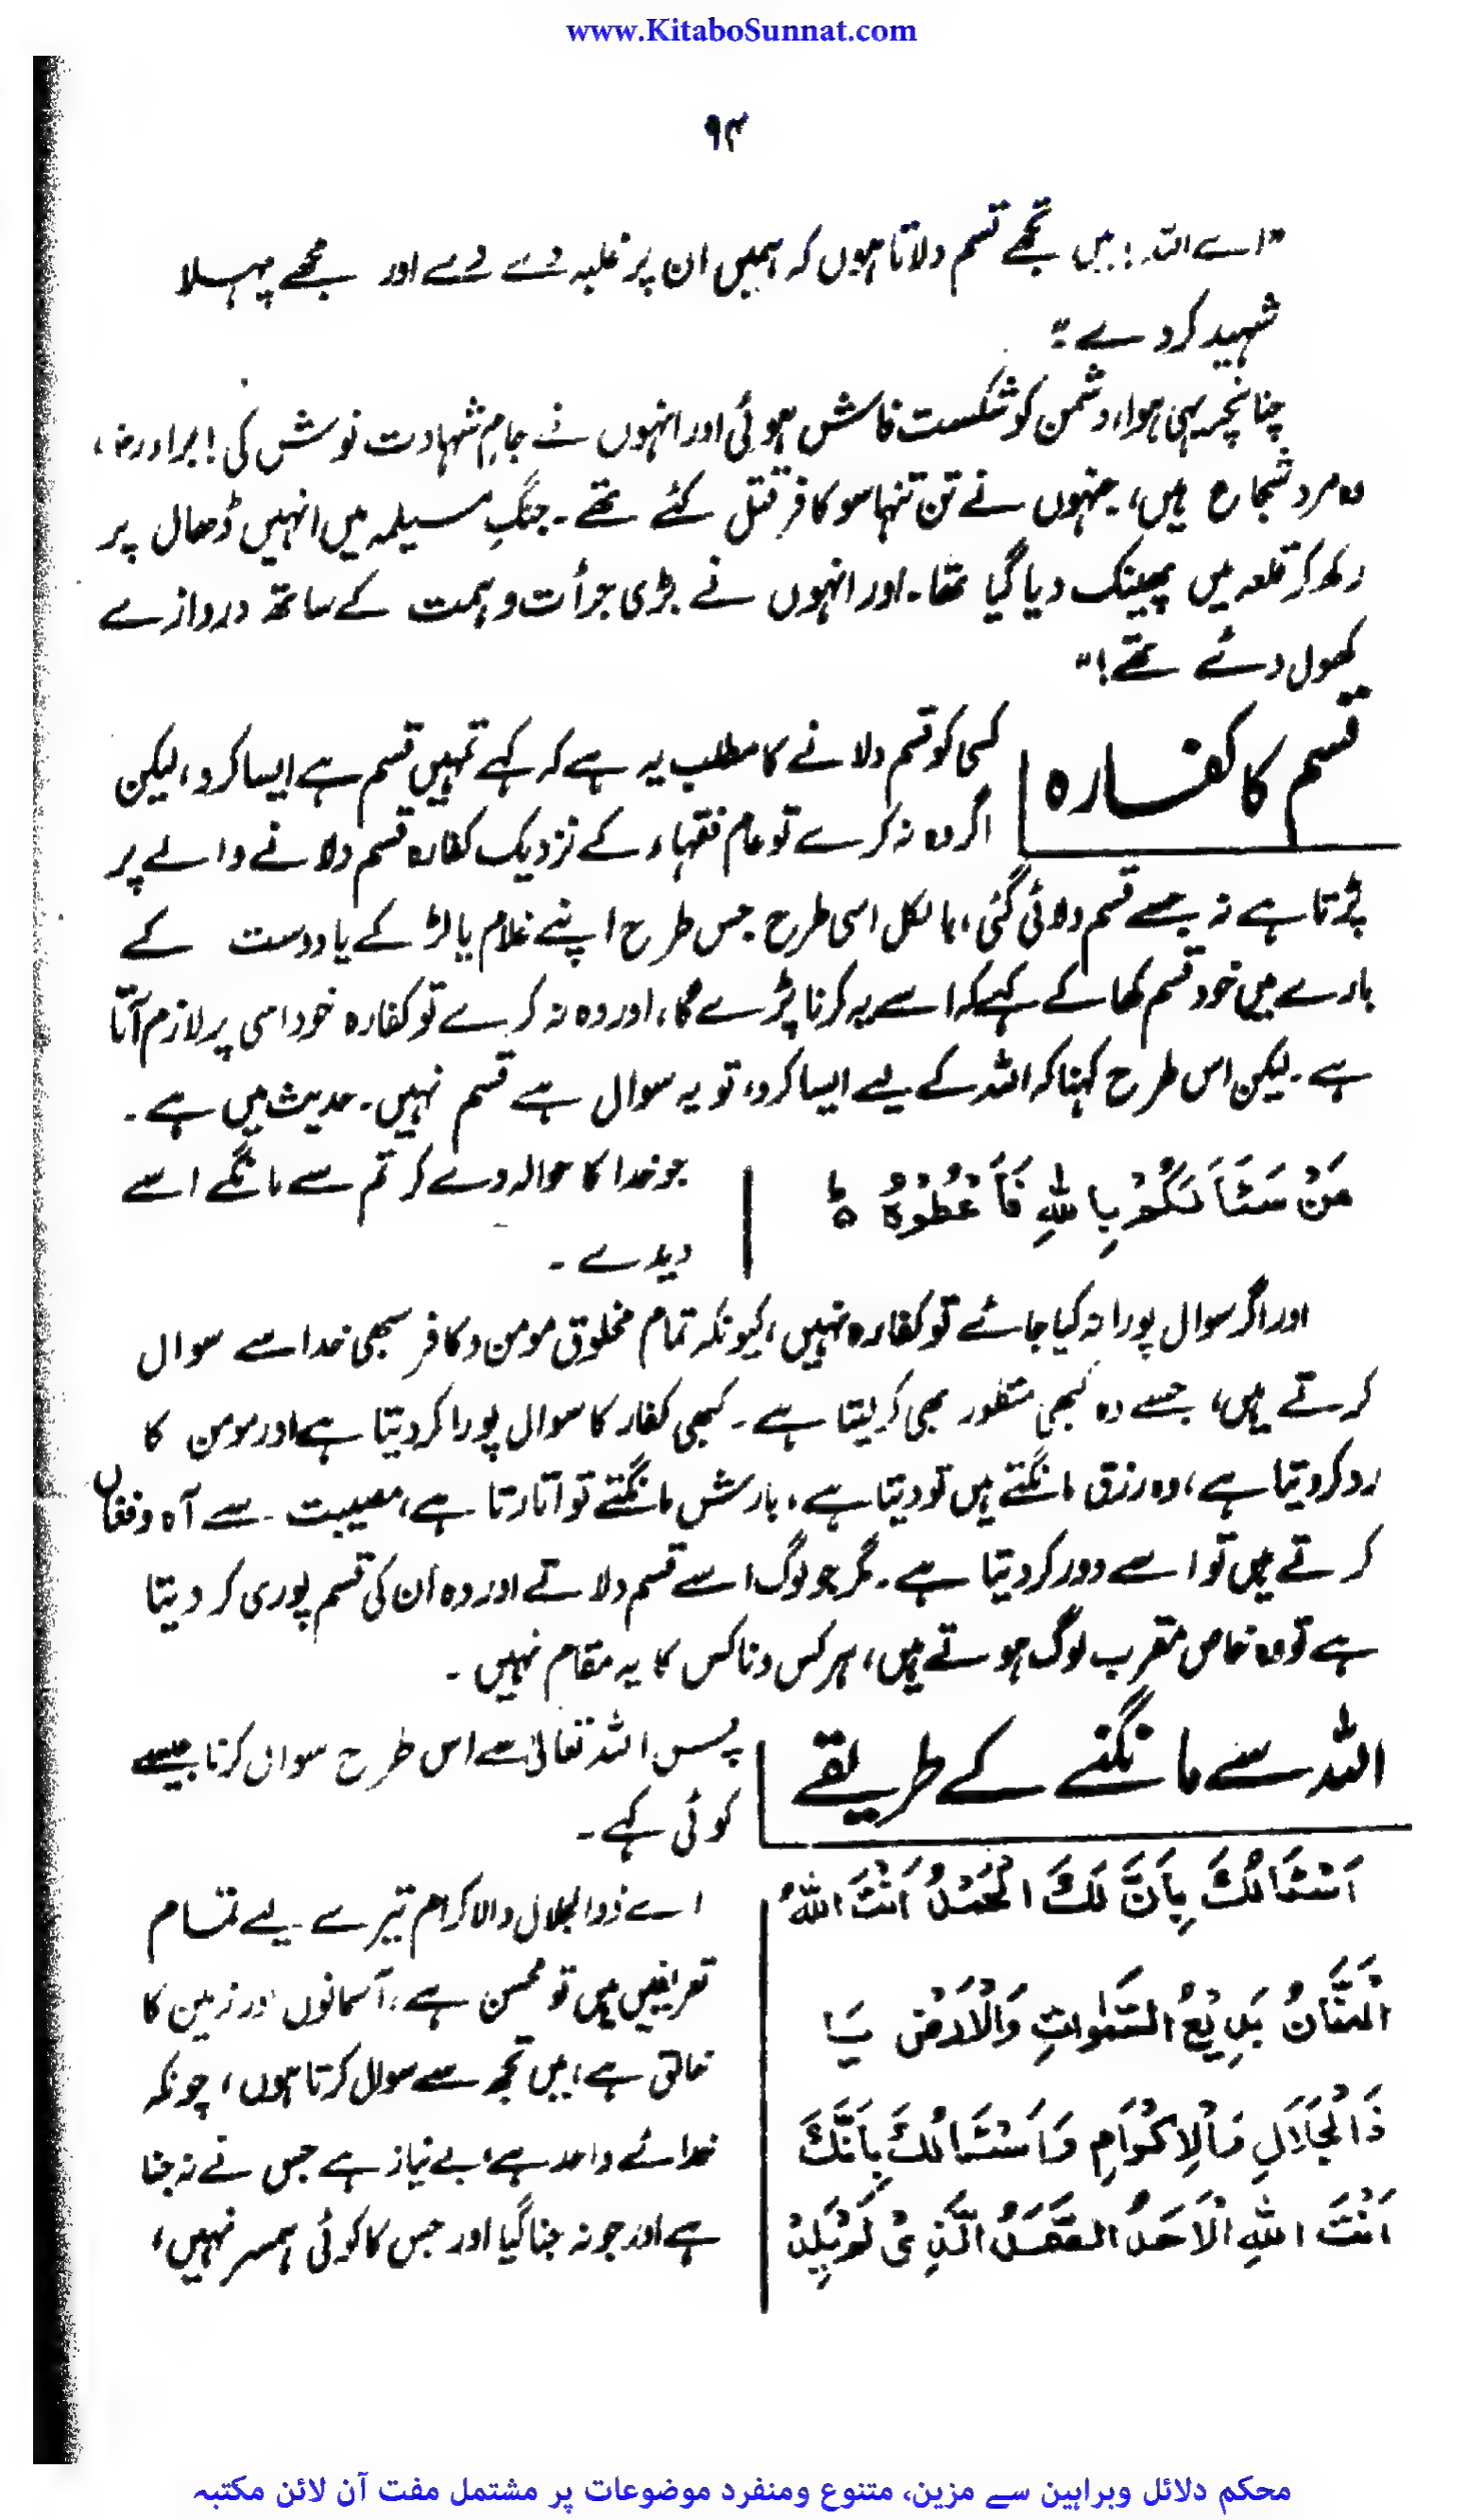 www.KitaboSunnat.com
۹۲
”اے اللہ! میں تجھے قسم دلاتا ہوں کہ ہمیں ان پر غلبہ دے دے اور مجھے پہلا
شہید کر دے“
چنانچہ یہی ہوا، دشمن کو شکست فاش ہوئی اور انہوں نے جامِ شہادت نوش کی! براءؓ،
وہ مرد شجاع ہیں، جنہوں نے تن تنہا سو کافر قتل کئے تھے۔ جنگِ مسیلمہ میں انہیں ڈھال پر
رکھ کر قلعہ میں پھینک دیا گیا تھا۔ اور انہوں نے بڑی جرأت و ہمت کے ساتھ دروازے
کھول دئے تھے!“
قسم کا کفارہ
کسی کو قسم دلانے کا مطلب یہ ہے کہ کہے تمہیں قسم ہے ایسا کرو، لیکن
اگر وہ نہ کرے تو عام فقہاء کے نزدیک کفارہ قسم دلانے والے پر
پڑتا ہے نہ جسے قسم دلائی گئی، بالکل اسی طرح جس طرح اپنے غلام یا لڑکے یا دوست کے
بارے میں خود قسم کھا کے کہے کہ اسے یہ کرنا پڑے گا، اور وہ نہ کرے تو کفارہ خود اسی پر لازم آتا
ہے۔ لیکن اس طرح کہنا کہ اللہ کے لیے ایسا کرو، تو یہ سوال ہے قسم نہیں۔ حدیث میں ہے۔
مَنْ سَئَاَلَكُمْ بِاللّٰهِ فَاَعْطُوْهُ ط
جو خدا کا حوالہ دے کر تم سے مانگے اسے
دیدے۔
اور اگر سوال پورا نہ کیا جائے تو کفارہ نہیں، کیونکہ تمام مخلوق مومن و کافر سبھی خدا سے سوال
کرتے ہیں، جسے وہ کبھی منظور بھی کر لیتا ہے۔ کبھی کفار کا سوال پورا کر دیتا ہے اور مومن کا
رد کر دیتا ہے، وہ رزق مانگتے ہیں تو دیتا ہے، بارش مانگتے تو اتارتا ہے، مصیبت سے آہ و فغاں
کرتے ہیں تو اسے دور کر دیتا ہے۔ مگر جو لوگ اسے قسم دلاتے اور وہ ان کی قسم پوری کر دیتا
ہے تو وہ خاص مقرب لوگ ہوتے ہیں، ہر کس و ناکس کا یہ مقام نہیں۔
اللہ سے مانگنے کے طریقے
پس اللہ تعالیٰ سے اس طرح سوال کرنا جیسے
کوئی کہے۔
اَسْئَاَلُكَ بِاَنَّ لَكَ الْحَمْدُ اَنْتَ اللّٰهُ
الْمَنَّانُ بَدِيْعُ السَّمٰوَاتِ وَالْاَرْضِ يَا
ذَا الْجَلَالِ وَالْاِكْرَامِ وَاَسْئَاَلُكَ بِاَنَّكَ
اَنْتَ اللّٰهِ الْاَحَدُ الصَّمَدُ الَّذِىْ لَمْ يَلِدْ
اے ذوالجلال والاکرام تیرے لیے تمام
تعریفیں ہیں تو محسن ہے، آسمانوں اور زمین کا
خالق ہے، میں تجھ سے سوال کرتا ہوں، چونکہ
خدائے واحد ہے، بے نیاز ہے جس نے نہ جنا
ہے اور جو نہ جنا گیا اور جس کا کوئی ہمسر نہیں،
محکم دلائل وبراہین سے مزین، متنوع ومنفرد موضوعات پر مشتمل مفت آن لائن مکتبہ